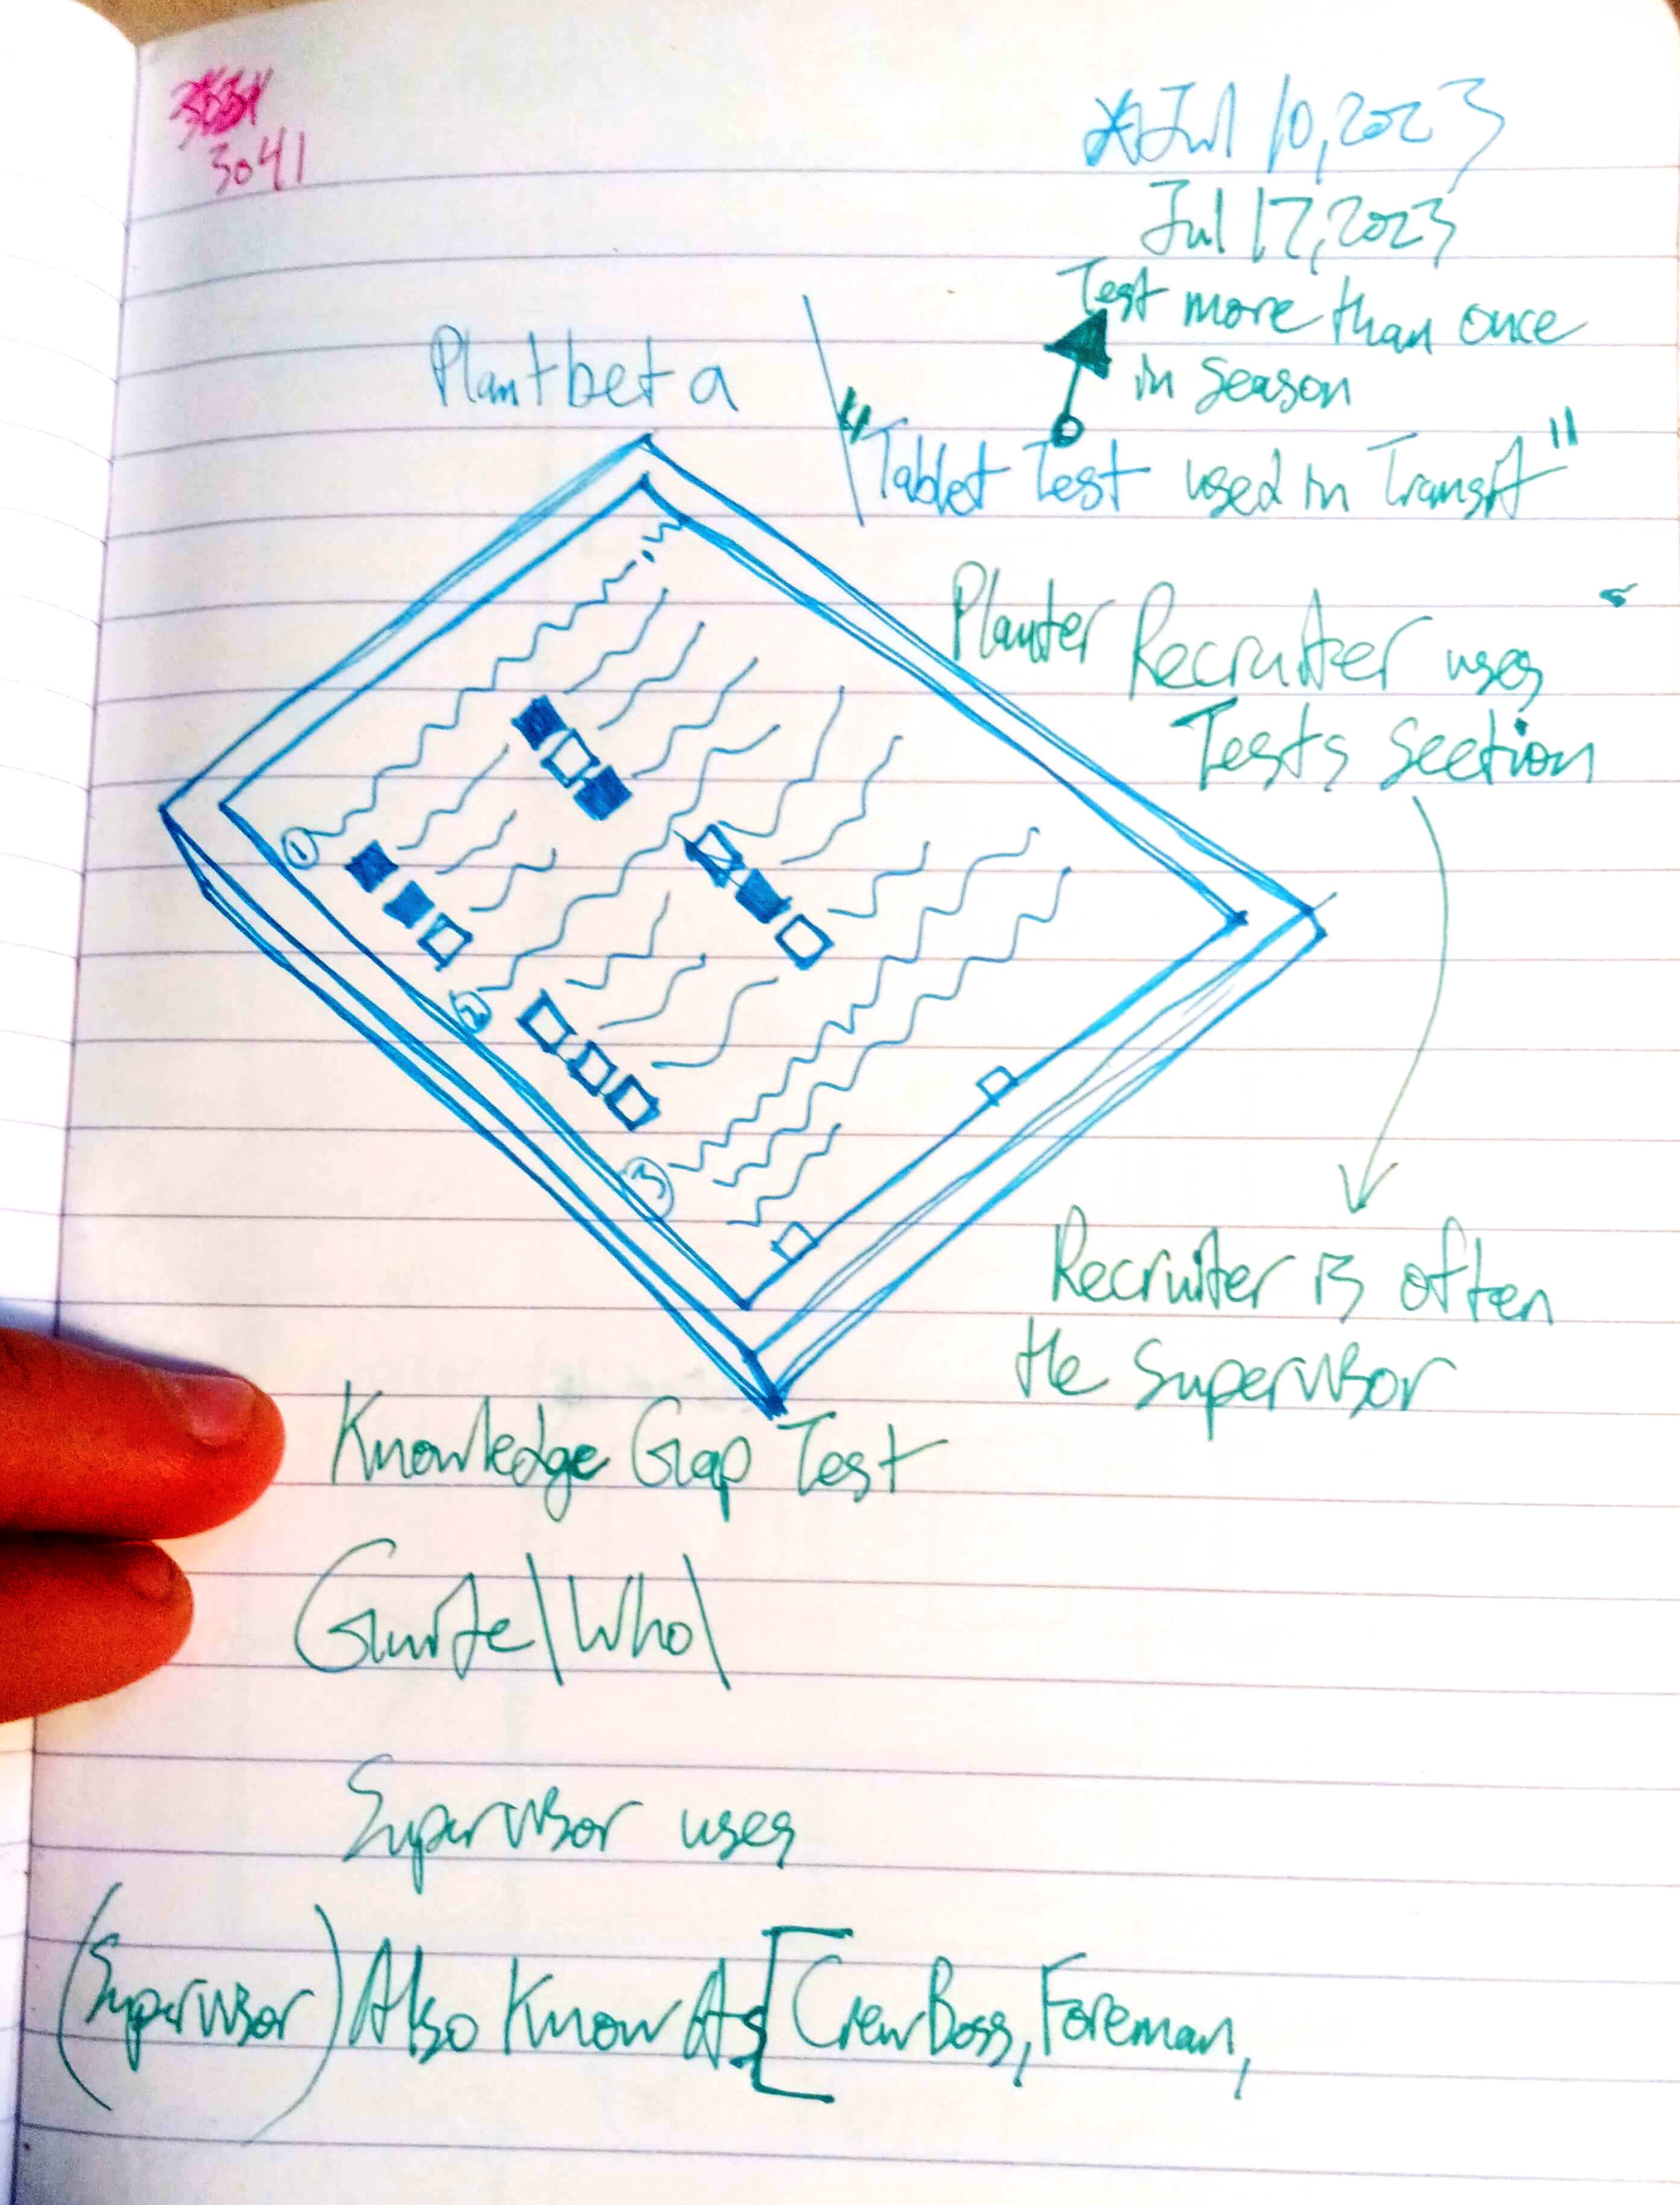 3041
Jul 10, 2023
Jul 17, 2023
Test more than once
in Season
Plantbeta
"Tablet Test used in Transit"
Planter Recruiter uses
Tests Section
1
2
3
Recruiter is often
the Supervisor
Knowledge Gap Test
\Who\
Supervisor uses
(Supervisor) Also Know As [Crew Boss, Foreman,